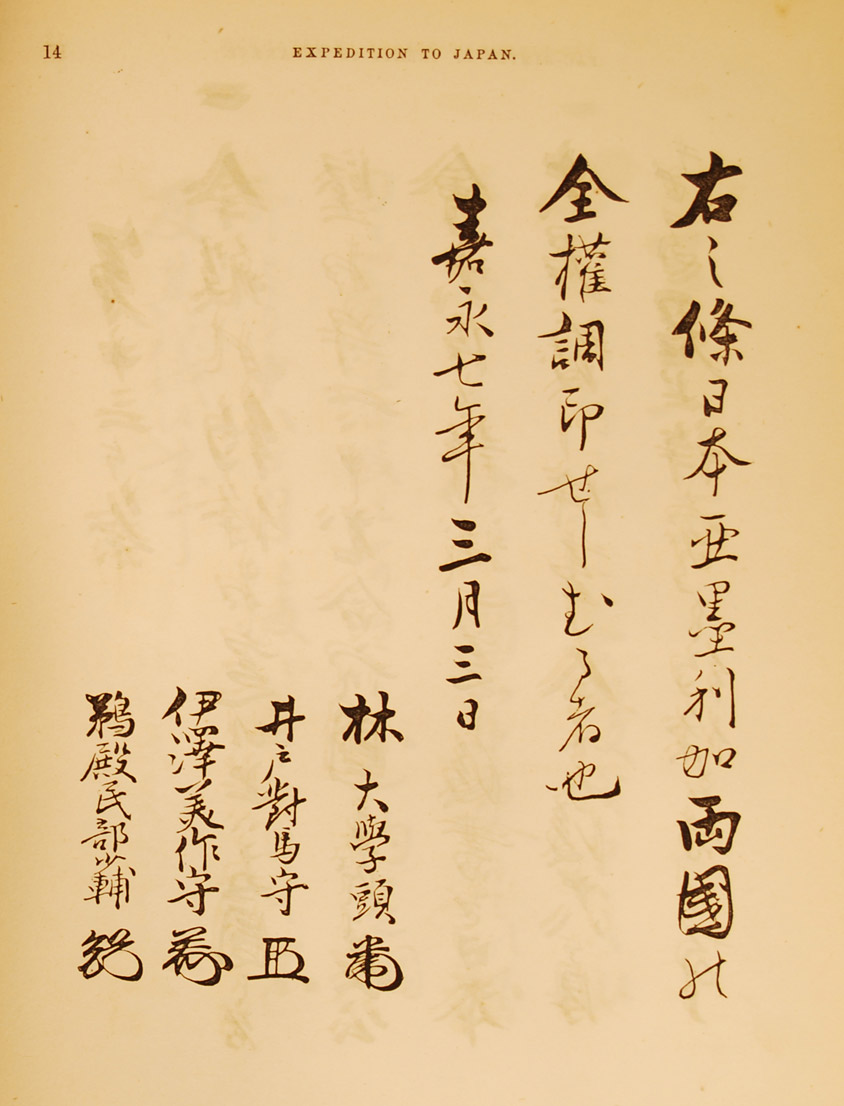 14
EXPEDITION TO JAPAN.
右之條日本亜墨利加両國の
全權調印せしむる者也
嘉永七年三月三日
林大學頭
井戸對馬守
伊澤美作守
鵜殿民部少輔